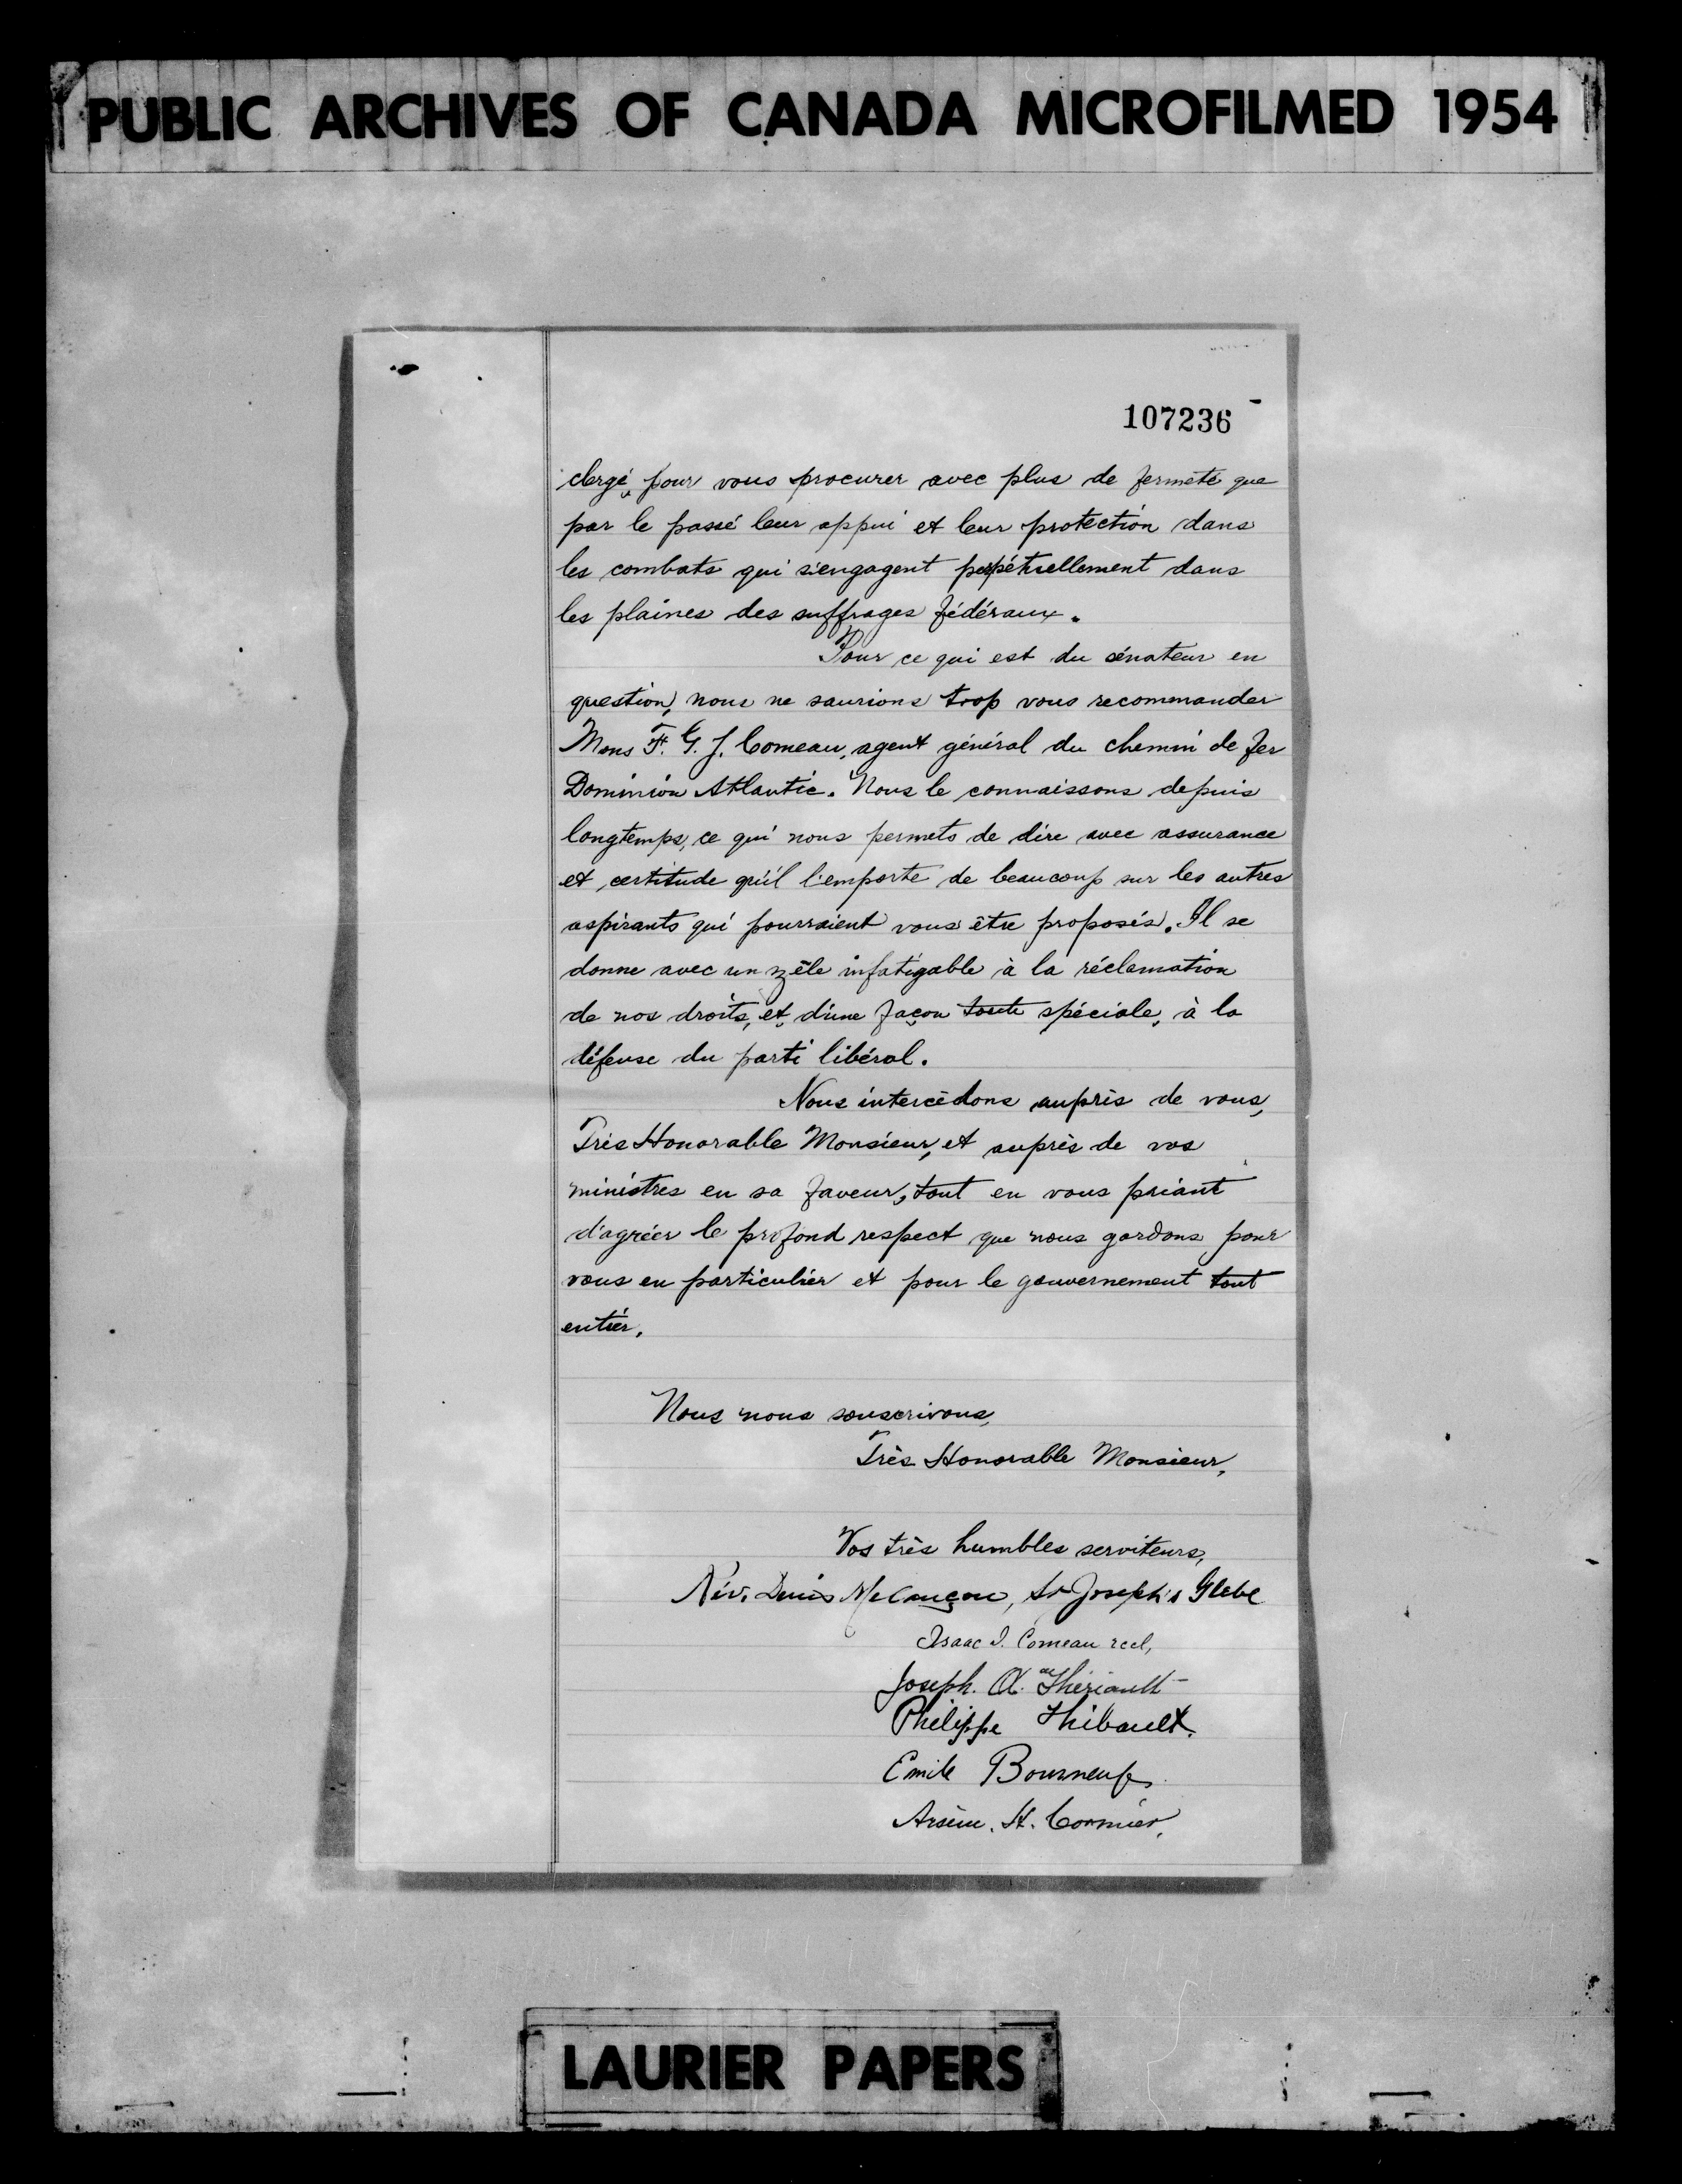 PUBLIC ARCHIVES OF CANADA MICROFILMED 1954
107236
clergé, pour vous procurer avec plus de fermeté que
par le passé leur appui et leur protection dans
les combats qui s'engagent perpétuellement dans
les plaines des suffrages fédéraux.
Pour ce qui est du sénateur en
question, nous ne saurions trop vous recommander
Mons F. G. J. Comeau, agent général du chemin de fer
Dominion Atlantic. Nous le connaissons depuis
longtemps, ce qui nous permets de dire avec assurance
et certitude qu'il l'emporte de beaucoup sur les autres
aspirants qui pourraient vous être proposés. Il se
donne avec un zêle infatigable à la réclamation
de nos droits, et, d'une façon toute spéciale, à la
défense du parti libéral.
Nous intercédons auprès de vous,
Très Honorable Monsieur, et auprès de vos
ministres en sa faveur, tout en vous priant
d'agréer le profond respect que nous gardons pour
vous en particulier et pour le gouvernement tout
entier.
Nous nous souscrivons,
Très Honorable Monsieur,
Vos très humbles serviteurs,
Rév. Denis Melançon, St Joseph's Glebe
Isaac J. Comeau
Joseph. A. Thériault
Philippe Thibault.
Emile Bourneuf,
Arsène. H. Cormier,
LAURIER PAPERS